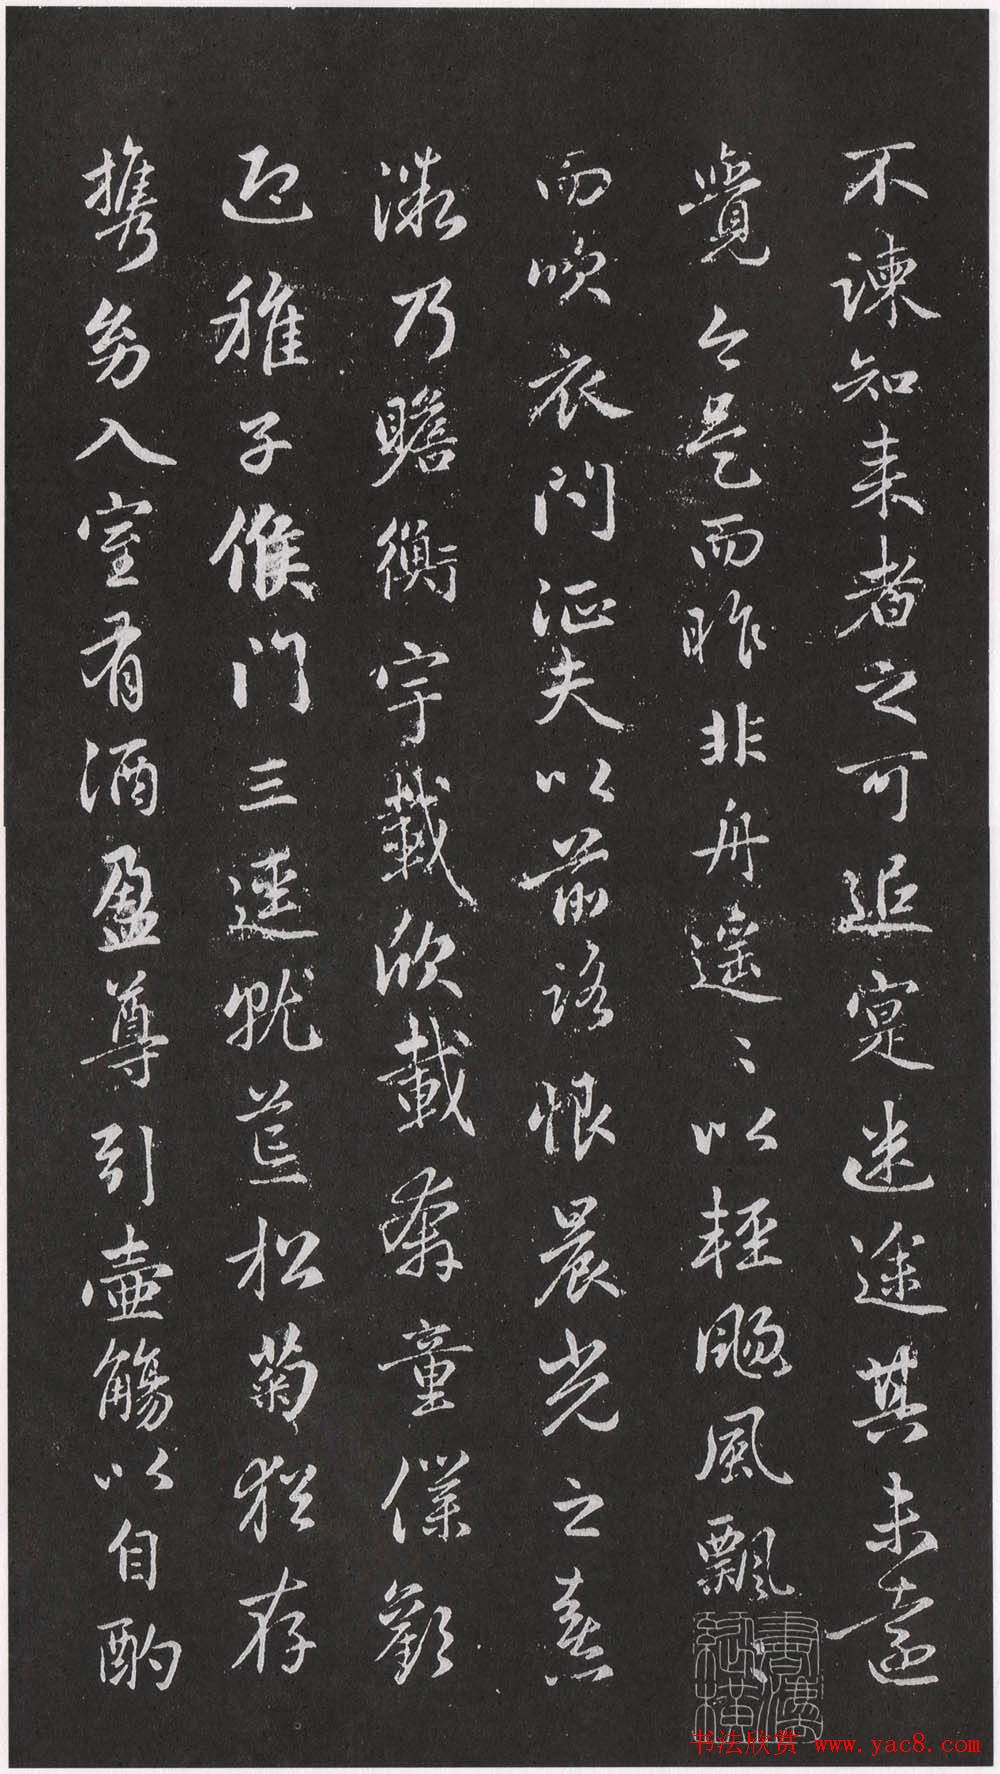 不諫知来者之可追寔迷途其未遠
覺今是而昨非舟遥〻以輕颺風飄〻
而吹衣問征夫以前路恨晨光之熹
微乃瞻衡宇載欣載奔童僕歡
迎稚子候門三逕就荒松菊猶存
攜幼入室有酒盈尊引壺觴以自酌
書法欣赏 www.yac8.com